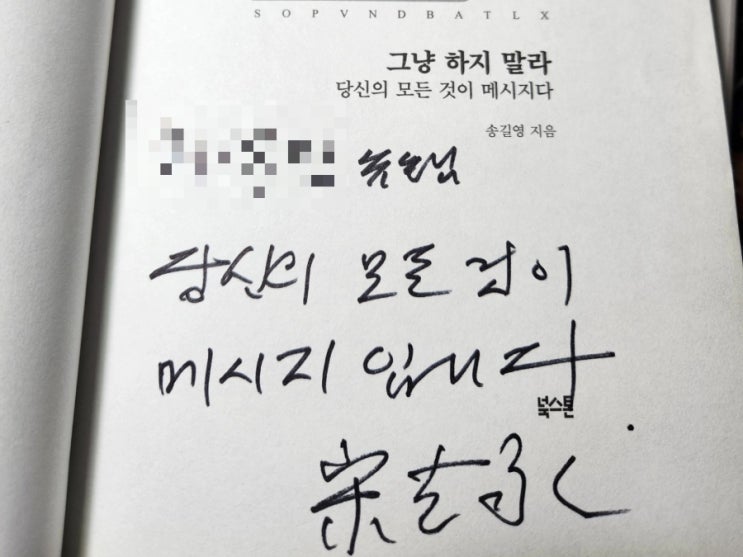 SOPVNDBATLX
그냥 하지 말라
당신의 모든 것이 메시지다
송길영 지음
당신의 모든 것이
메시지 입니다
북스톤
宋吉永